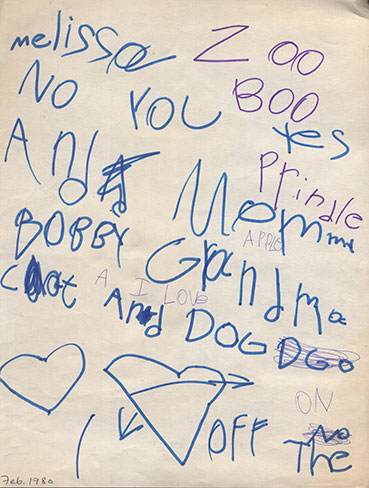 melissa ZOO
NO YOU BOO
Yes
And
Prindle
Momm
BOBBY APPLE
Grandma
Cat A I LOVE
And DOG DGo
ON
OFF No
The
Feb. 1980